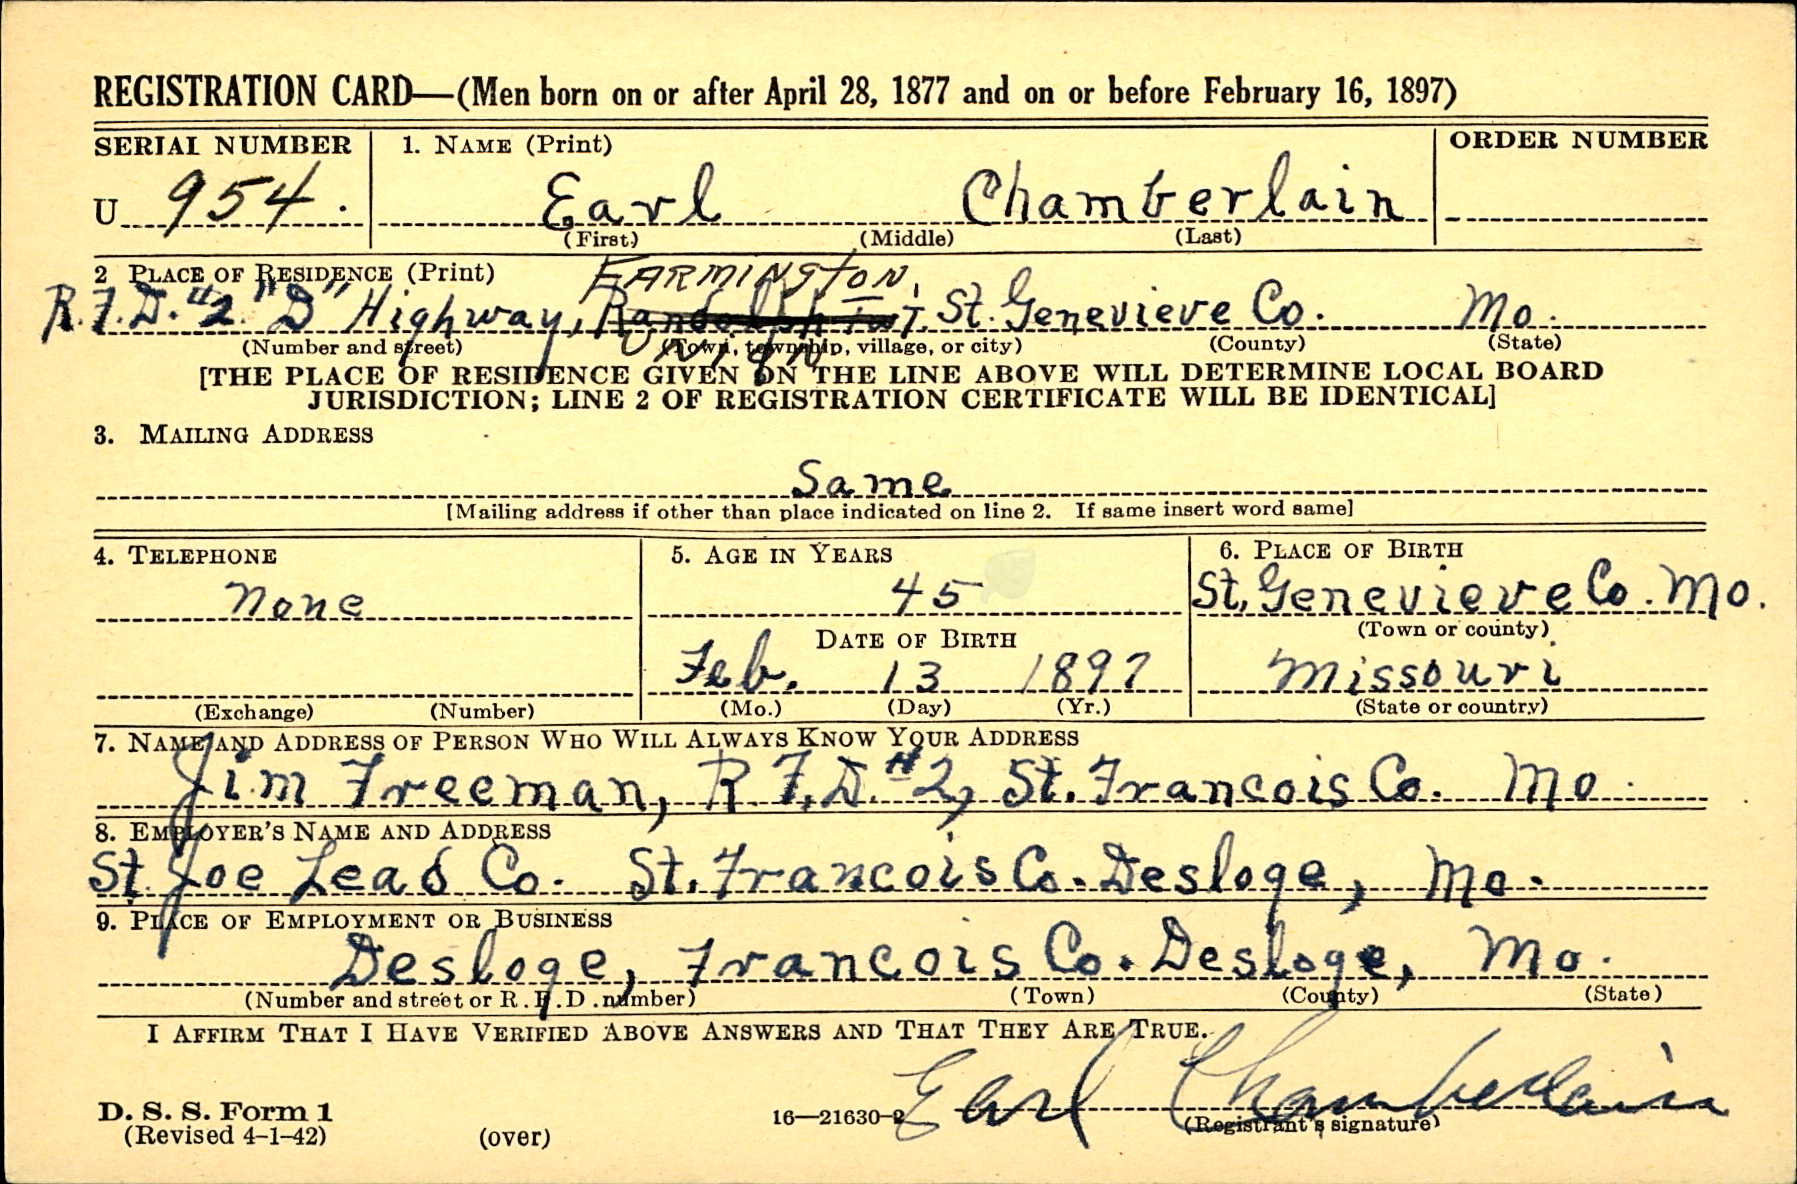 REGISTRATION CARD—(Men born on or after April 28, 1877 and on or before February 16, 1897)
SERIAL NUMBER 1. NAME (Print) ORDER NUMBER
U 954. Earl Chamberlain
(First) (Middle) (Last)
2 PLACE OF RESIDENCE (Print) FARMINGTON,
R.F.D. #2. "D" Highway, Randolph Twp. St. Genevieve Co. Mo.
UNION
(Number and street) (Town, township, village, or city) (County) (State)
[THE PLACE OF RESIDENCE GIVEN ON THE LINE ABOVE WILL DETERMINE LOCAL BOARD
JURISDICTION; LINE 2 OF REGISTRATION CERTIFICATE WILL BE IDENTICAL]
3. MAILING ADDRESS
Same
[Mailing address if other than place indicated on line 2. If same insert word same]
4. TELEPHONE 5. AGE IN YEARS 6. PLACE OF BIRTH
None 45 St. Genevieve Co. Mo.
DATE OF BIRTH (Town or county)
Feb. 13 1897 Missouri
(Exchange) (Number) (Mo.) (Day) (Yr.) (State or country)
7. NAME AND ADDRESS OF PERSON WHO WILL ALWAYS KNOW YOUR ADDRESS
Jim Freeman, R.F.D. #2, St. Francois Co. Mo.
8. EMPLOYER'S NAME AND ADDRESS
St. Joe Lead Co. St. Francois Co. Desloge, Mo.
9. PLACE OF EMPLOYMENT OR BUSINESS
Desloge, Francois Co. Desloge, Mo.
(Number and street or R. F. D. number) (Town) (County) (State)
I AFFIRM THAT I HAVE VERIFIED ABOVE ANSWERS AND THAT THEY ARE TRUE.
Earl Chamberlain
D. S. S. Form 1
(Revised 4-1-42) (over) 16—21630-2 (Registrant's signature)